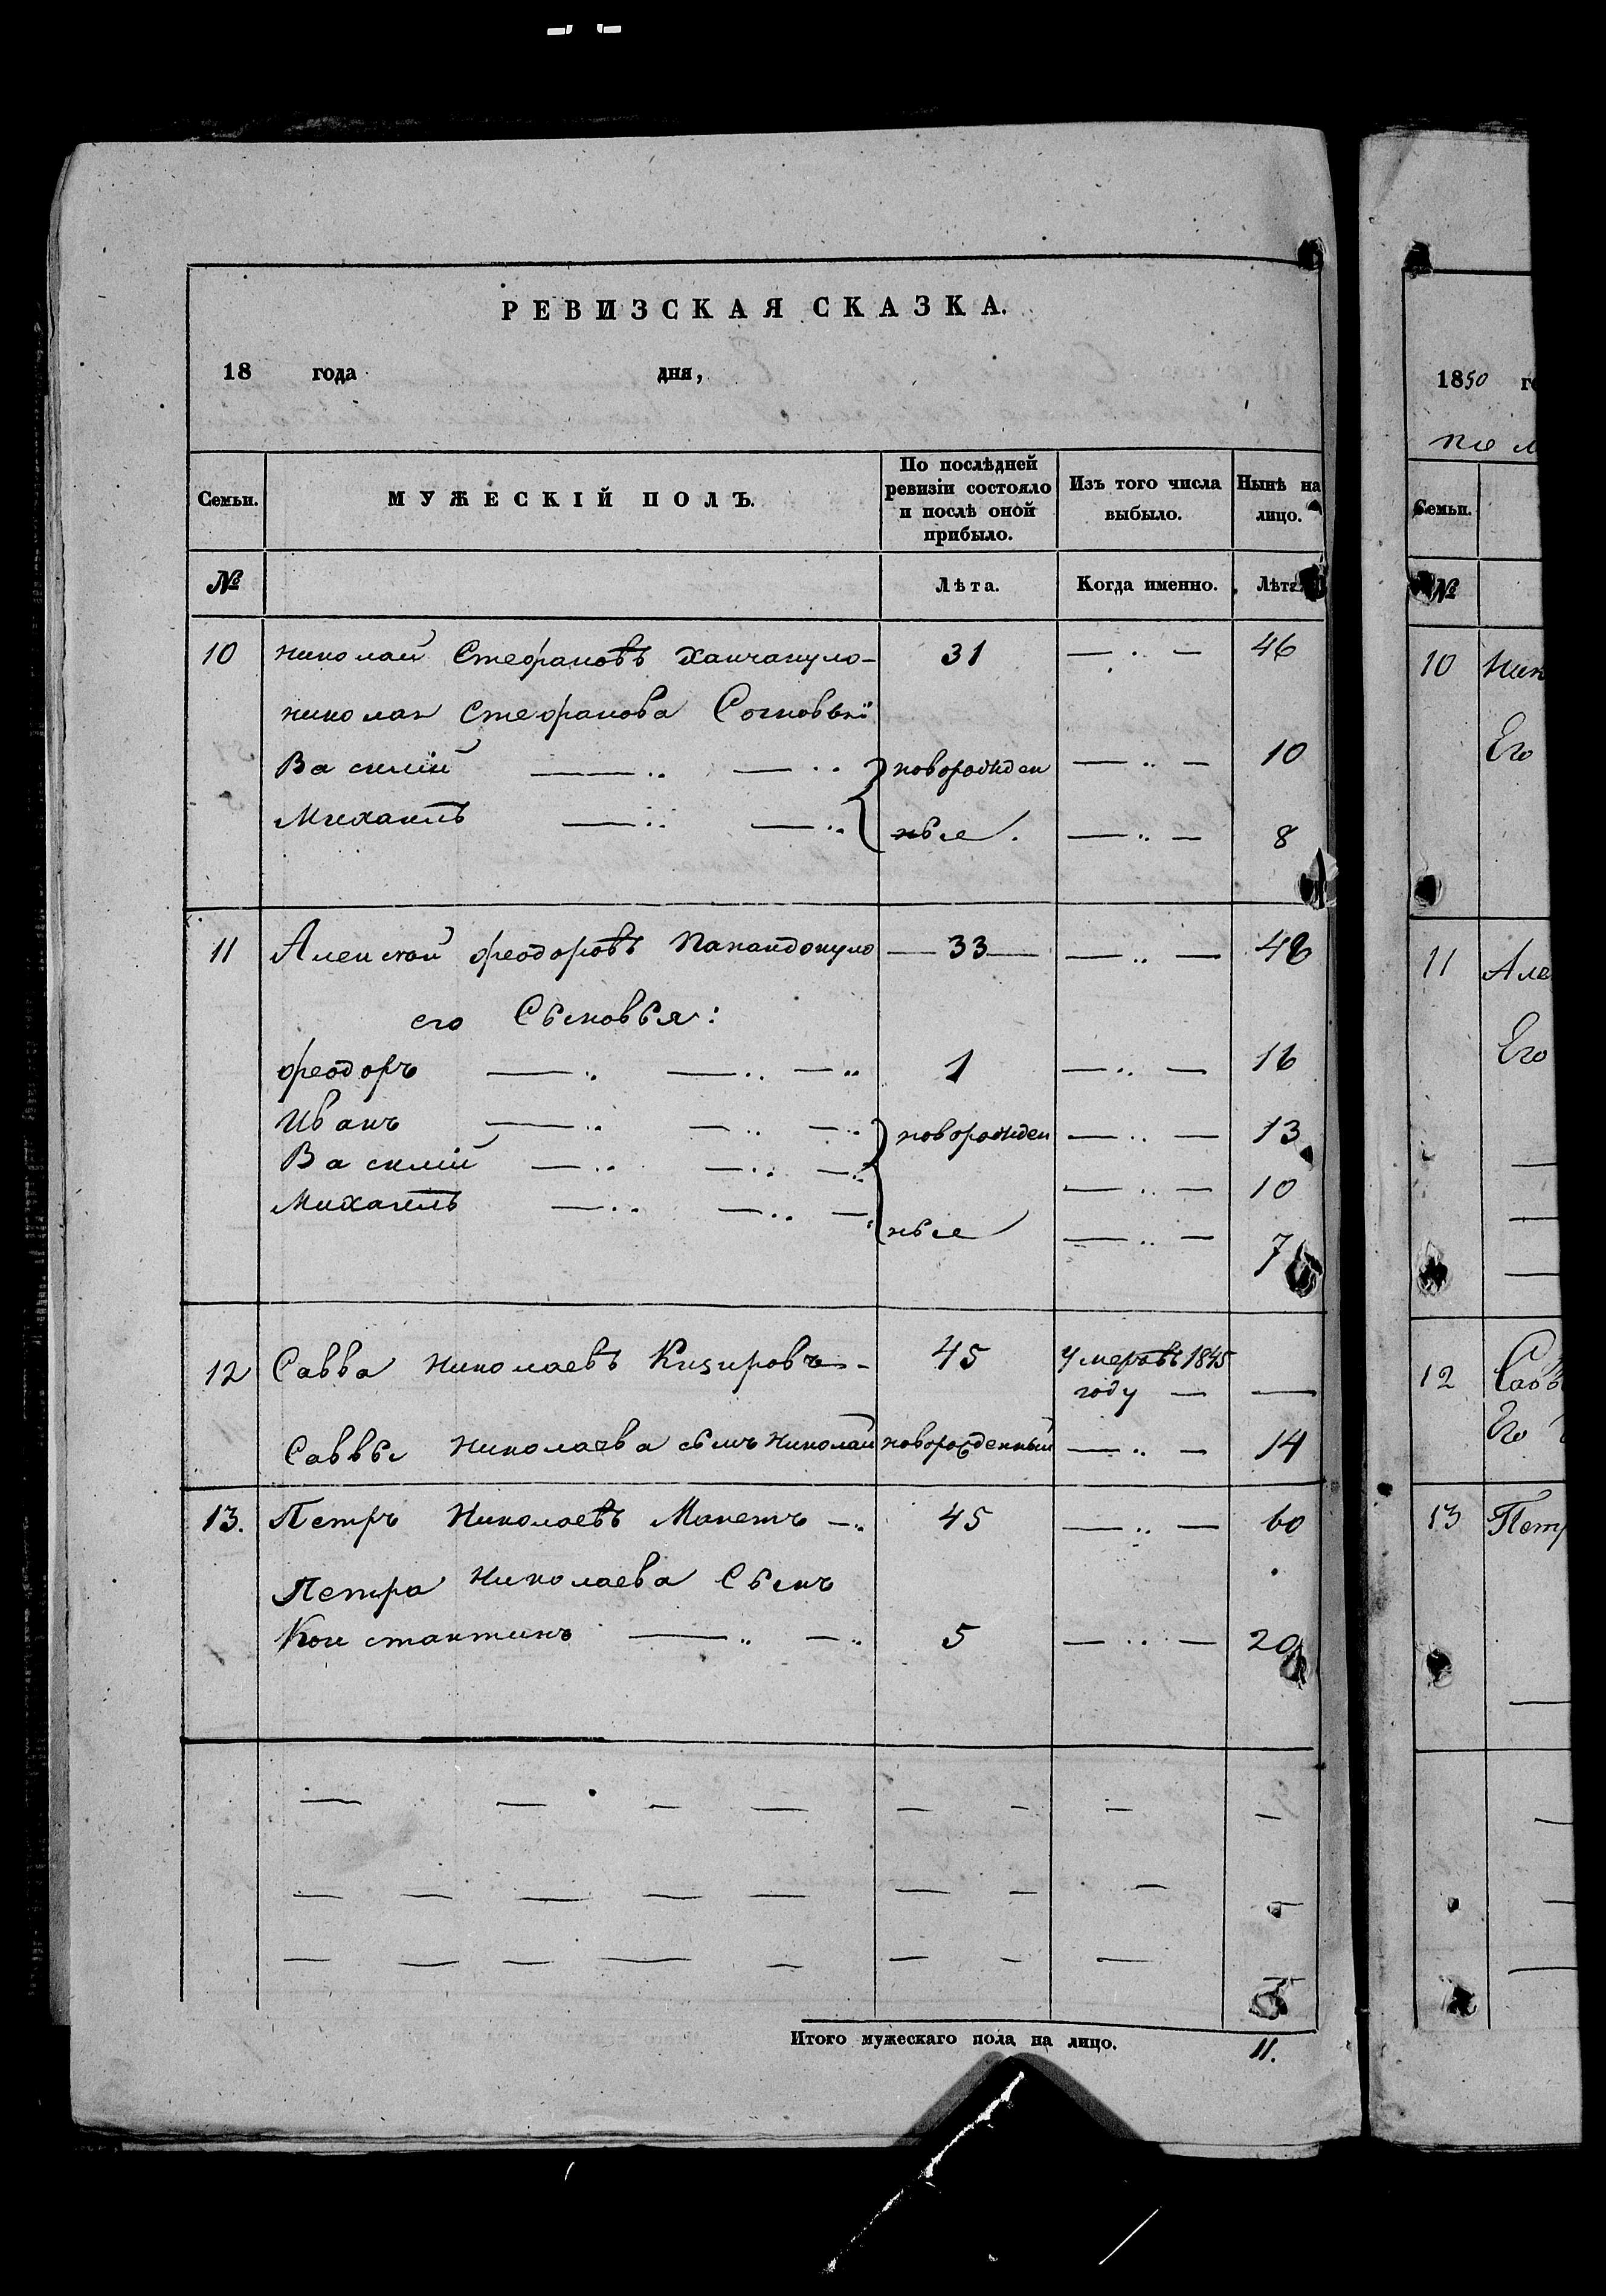 РЕВИЗСКАЯ СКАЗКА.
18 года дня,
Семьи. МУЖЕСКІЙ ПОЛЪ. По послѣдней ревизіи состояло и послѣ оной прибыло. Изъ того числа выбыло. Нынѣ на лицо.
№ Лѣта. Когда именно. Лѣта.
10 Николай Стефановъ Ханчапуло- 31 — · — 46
Николая Стефанова Сыновья:
Василій — ·· — ·· новорожден — ·· — 10
Михаилъ — ·· — ·· ные. — ·· — 8
11 Алексѣй Феодоровъ Папандопуло — 33 — — ·· — 48
его Сыновья:
Феодоръ — ·· — ·· — ·· 1 — ·· — 16
Иванъ — ·· — ·· — ·· новорожден — ·· — 13
Василій — ·· — ·· — ·· — ·· — 10
Михаилъ — ·· — ·· — ·· ные — ·· — 7
12 Савва Николаевъ Кизировъ - 45 Умеръ въ 1845
году — —
Саввы Николаева сынъ Николай новорожденный — ·· — 14
13. Петръ Николаевъ — ·· 45 — ·· — 60
Петра Николаева Сынъ
Константинъ — ·· — ·· 5 — ·· — 20
Итого мужескаго пола на лицо. 11.
1850 г
по
Семьи.
№
10 Ник
Его
11 Але
Его
12 Савв
Его
13 Петр